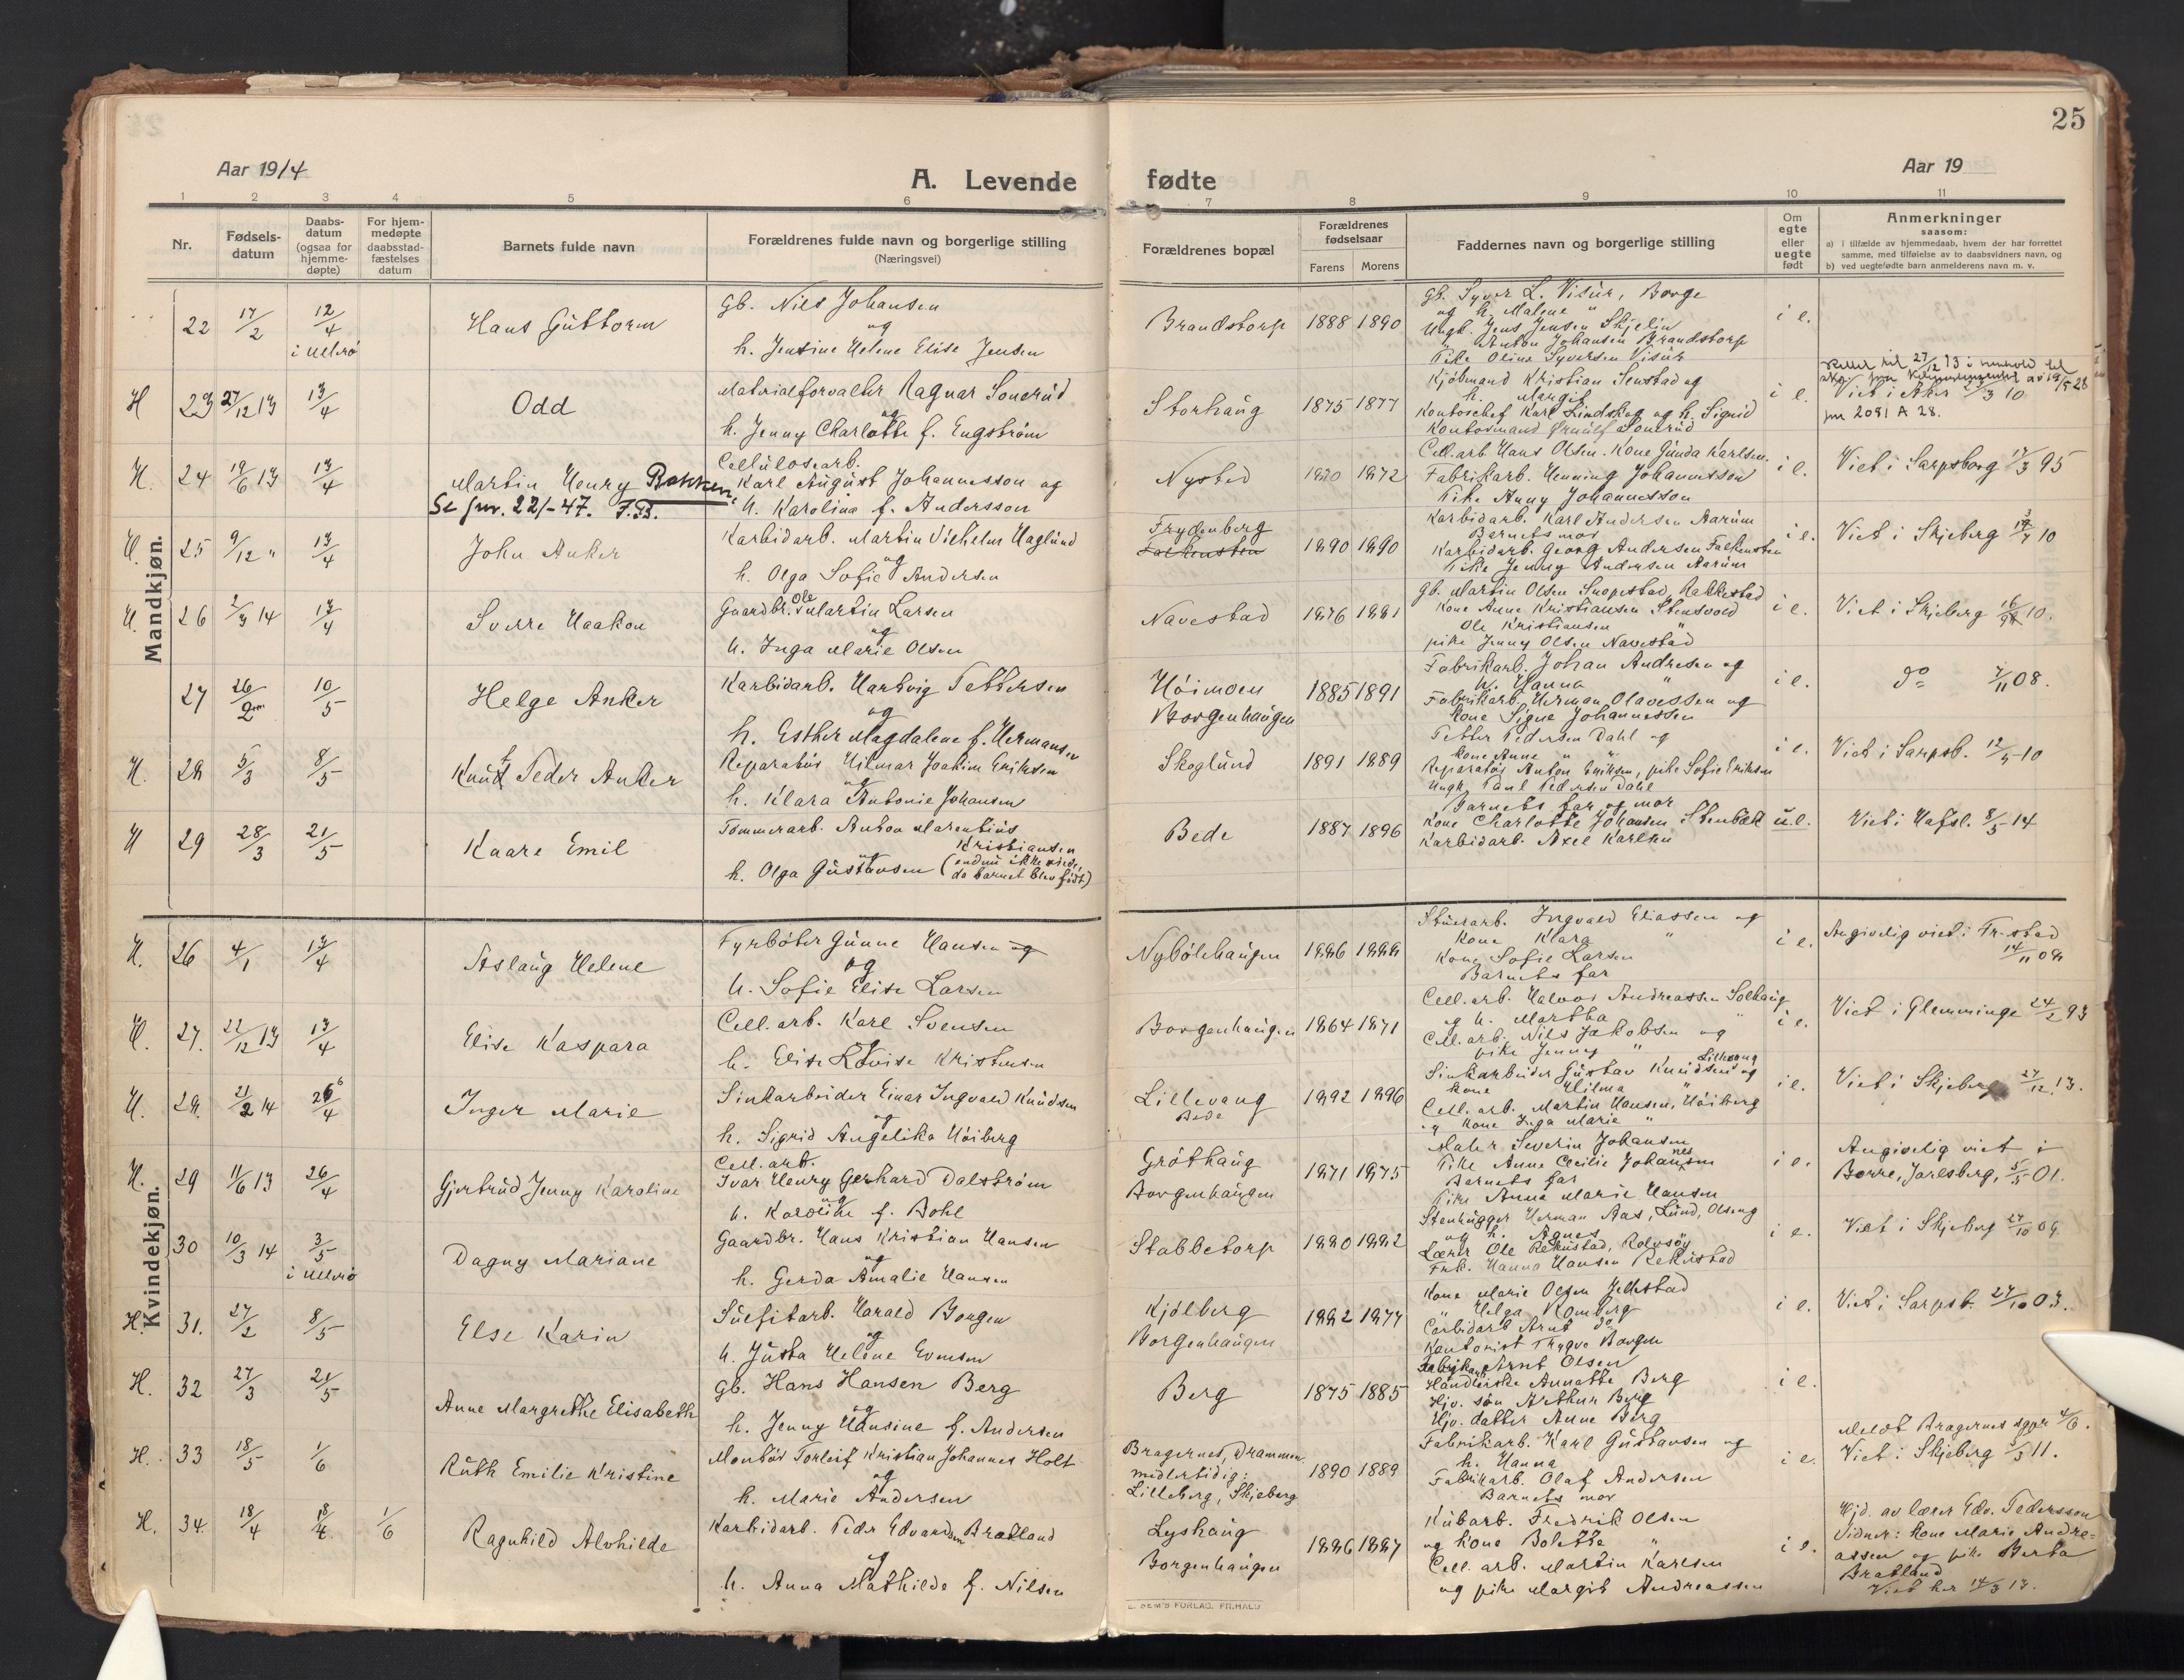 25
Aar 1914
A. Levende
fødte
Aar 19
1 2 3 4 5 6 7 8 9 10 11
Nr.
Fødsels-
datum
Daabs-
datum
(ogsaa for
hjemme-
døpte)
For hjem-
medøpte
daabsstad-
fæstelses
datum
Barnets fulde navn
Forældrenes fulde navn og borgerlige stilling
(Næringsvei)
Forældrenes bopæl
Forældrenes
fødselsaar
Farens Morens
Faddernes navn og borgerlige stilling
Om
egte
eller
uegte
født
Anmerkninger
saasom:
a) i tilfælde av hjemmedaab, hvem der har forrettet
samme, med tilføielse av to daabsvidners navn, og
b) ved uegtefødte barn anmelderens navn m. v.
Mandkjøn.
22 17/2 12/4 i Ullerø
Hans Guttorm
Gb. Nils Johansen
og
h. Jensine Helene Elise Jensen
Brandstorp 1888 1890
Gb. Syver L. Visur, Borge
og h. Malene "
Ungk. Jens Jensen Skjelin
" Anton Johansen Brandstorp
Pike Oline Syversen Visur
i e.
H 23 27/12 13 13/4
Odd
Materialforvalter Ragnar Sonerud
og
h. Jenny Charlotte f. Engstrøm
Storhaug 1875 1877
Kjøbmand Kristian Senstad og
h. Margit
Kontorchef Karl Lindskog og h. Sigrid
Kontormand Ørnulf Sonerud
i e.
Viet i Aker 10
jnr 2091 A 28.
H. 24 19/6 13 13/4
Martin Henry Bakken.
Se jnr. 221-47. F.B.
Cellulosearb.
Karl August Johannesson og
h. Karolina f. Andersson
Nysted 1872
Cell.arb. Hans Olsen. Kone Gunda Karlsen.
Fabrikarb. Henning Johannesson
Pike Anny Johannesson
i e.
Viet i Sarpsborg 17/3 95
H. 25 9/12 " 13/4
John Anker
Karbidarb. Martin Vilhelm Haglund
og
h. Olga Sofie Andersen
Frydenberg
Falkensten
1890 1890
Karbidarb. Karl Andersen Aarum
Barnets mor
Karbidarb. Georg Andersen Falkensten
Pike Jenny Andersen Aarum
i e.
Viet i Skjeberg 10
H. 26 2/3 14 13/4
Sverre Haakon
Gaardbr. Ole Martin Larsen
og
h. Inga Marie Olsen
Navestad 1876 1881
Gb. Martin Olsen Snopestad, Rakkestad
Kone Anne Kristiansen Stensvold
Ole Kristiansen "
pike Jenny Olsen Navestad
i e.
Viet i Skjeberg 10.
27 26/2 10/5
Helge Anker
Karbidarb. Hartvig Pettersen
og
h. Esther Magdalene f. Hermansen
Høimoen
Borgenhaugen
1885 1891
Fabrikarb. Johan Andresen og
h. Hanna "
Fabrikarb. Herman Olavessen og
kone Signe Johannessen
i e.
do 7/11 08.
H. 28 5/3 8/5
Knut Peder Anker
Reparatør Hilmar Joakim Eriksen
og
h. Klara Antonie Johansen
Skoglund 1891 1889
Petter Pedersen Dahl og
kone Anne "
Reparatør Anton Eriksen, pike Sofie Eriksen
Ungk. Paul Pedersen Dahl
i e.
Viet i Sarpsb. 10
H 29 28/3 21/5
Kaare Emil
Tømmerarb. Anton Marentius
Kristiansen
og
h. Olga Gustavsen (endnu ikke viede,
da barnet blev født)
Bede 1887 1896
Barnets far og mor
Kone Charlotte Johansen Stenbæk
Karbidarb. Axel Karlsen
u.e.
Viet i Hafsl. 8/5 14
Kvindekjøn.
H. 26 4/1 13/4
Aslaug Helene
Fyrbøter Gunne Hansen og
og
h. Sofie Elise Larsen
Nybølehaugen 1886 1888
Stuerarb. Ingvald Eliassen og
Kone Klara "
Kone Sofie Larsen
Barnets far
i e.
Angivelig viet i Fr.stad
14/11 08
H. 27. 22/12 13 13/4
Elise Kaspara
Cell.arb. Karl Svensen
og
h. Elise Lovise Kristensen
Borgenhaugen 1864 1871
Cell.arb. Halvor Andreassen Solhaug
og h. Martha "
Cell.arb. Nils Jakobsen og
pike Jenny "
i e.
Viet i Glemminge 24/2 93
H. 28. 21/2 14 26/4
Inger Marie
Sinkarbeider Einar Ingvald Knudsen
og
h. Sigrid Angelika Høiberg
Lillevang
Bede
1892 1896
Sinkarbeider Gustav Knudsen og Lillevang
kone Hilma "
Cell.arb. Martin Hansen, Høiberg
og kone Inga Marie "
i e.
Viet i Skjeberg 27/12 13.
H. 29 11/6 13 26/4
Gjertrud Jenny Karoline
Cell.arb.
Ivar Henry Gerhard Dalstrøm
og
h. Karoline f. Bohl
Grøthaug
Borgenhaugen
1871 1875
Maler Severin Johansen
Pike Anne Cecilie Johannesen
Barnets far
Pike Anna Marie Hansen
i e.
Angivelig viet i
Borre, Jarlsberg, 5/5 01.
30 10/3 14 3/5 i Ullerø
Dagny Mariane
Gaardbr. Hans Kristian Hansen
og
h. Gerda Amalie Hansen
Stabbetorp 1880 1882
Stenhugger Herman Aas, Lund, Olseng
og h. Agnes
Lærer Ole Rekustad, Rolvsøy
Frk. Hanna Hansen Rekustad
i e.
Viet i Skjeberg 27/10 09
H. 31. 27/2 8/5
Else Karin
Sulfitarb. Harald Borgen
og
h. Justa Helene Evensen
Kjølberg
Borgenhaugen
1882 1877
Kone Marie Olsen Jellestad
" Helga Romberg
Carbidarb. Arnt do
Kontorist Trygve Borgen
i e.
Viet i Sarpsb. 27/10 03.
H. 32 27/3 21/5
Anne Margrethe Elisabeth
Gb. Hans Hansen Berg
og
h. Jenny Hansine f. Andersen
Berg 1875 1885
Fabrikarb. Arnt Olsen
Handlerske Annette Berg
Hjv. søn Arthur Berg
Hjv. datter Anne Berg
i e.
H. 33 18/5 1/6
Ruth Emilie Kristine
Montør Torleif Kristian Johannes Holt
og
h. Marie Andersen
Bragernes, Drammen
midlertidig:
Lilleborg, Skjeberg
1890 1889
Fabrikarb. Karl Gustavsen og
h. Hanna
Fabrikarb. Olaf Andersen
Barnets mor
i e.
Meldt Bragernes sgpr 4/6.
Viet i Skjeberg 11.
H. 34. 18/4 18/4 1/6
Ragnhild Alvhilde
Karbidarb. Peder Edvardsen Bratland
og
h. Anna Mathilde f. Nilsen
Lyshaug
Borgenhaugen
1886 1887
Kubarb. Fredrik Olsen
og kone Bolette "
Cell.arb. Martin Karlsen
og pike Margit Andreassen
i e.
Hjd. av lærer Edv. Pedersen
Vidner: kone Marie Andre-
assen og pike Berta
Bratland
Viet her 14/3 13.
E. SEM'S FORLAG, FR.HALD